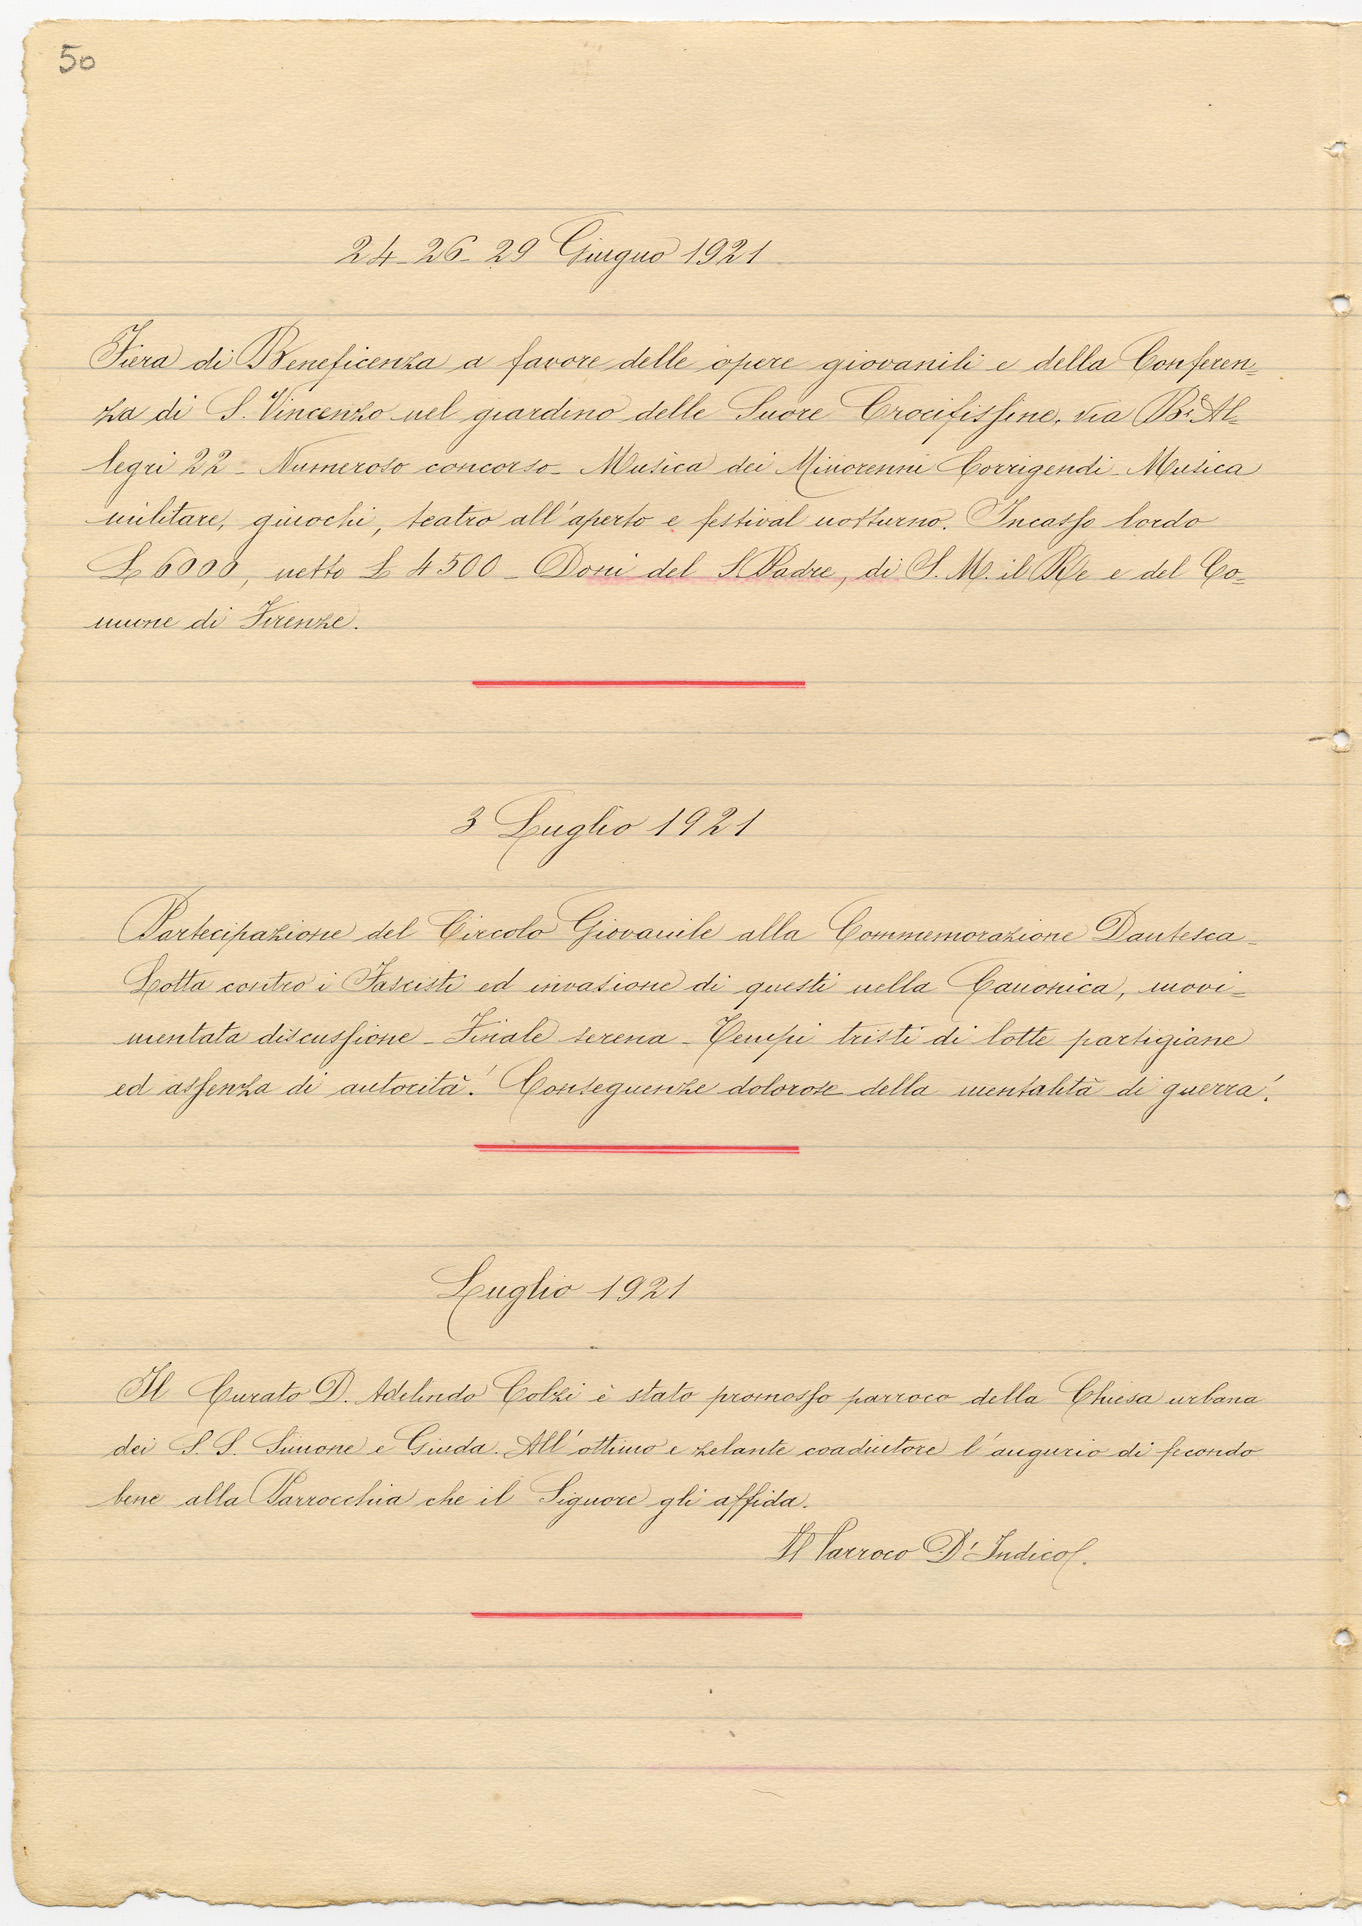 50
24-26-29 Giugno 1921
Fiera di Beneficenza a favore delle opere giovanili e della Conferen=
za di S. Vincenzo nel giardino delle Suore Crocifissine, via Bo Al=
legri 22 - Numeroso concorso - Musica dei Minorenni Corrigendi - Musica
militare, giuochi, teatro all'aperto e festival notturno. Incasso lordo
£ 6000, netto £ 4500 - Doni del S. Padre, di S. M. il Re e del Co=
mune di Firenze.
3 Luglio 1921
Partecipazione del Circolo Giovanile alla Commemorazione Dantesca -
Lotta contro i Fascisti ed invasione di questi nella Canonica, movi=
mentata discussione - Finale serena - Tempi tristi di lotte partigiane
ed assenza di autorità! Conseguenze dolorose della mentalità di guerra!
Luglio 1921
Il Curato D. Adelindo Colzi è stato promosso parroco della Chiesa urbana
dei S. S. Simone e Giuda. All'ottimo e zelante coadiutore l'augurio di fecondo
bene alla Parrocchia che il Signore gli affida.
Il Parroco D'Indico